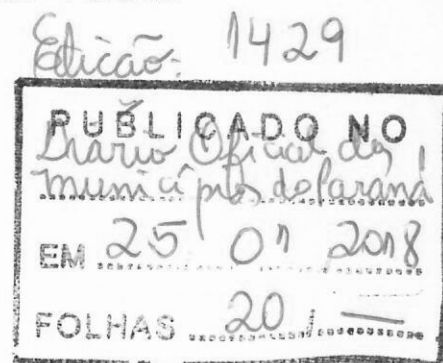 Edição: 1429
PUBLICADO NO
Diário Oficial dos
Municípios do Paraná
EM 25 01 2018
FOLHAS 20 / —